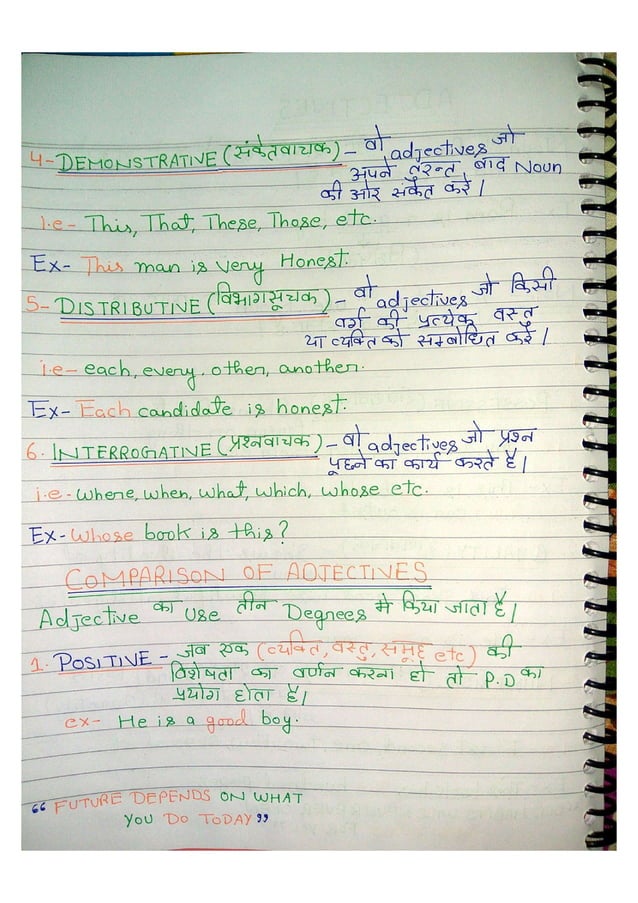 4- DEMONSTRATIVE (संकेतवाचक) - वो adjectives जो
अपने तुरन्त बाद Noun
की ओर संकेत करें।
i.e - This, That, These, Those, etc.
Ex- This man is very Honest.
5- DISTRIBUTIVE (विभागसूचक) - वो adjectives जो किसी
वर्ग की प्रत्येक वस्तु
या व्यक्ति को सम्बोधित करें।
i.e - each, every. other, another.
Ex- Each candidate is honest.
6. INTERROGATIVE (प्रश्नवाचक) - वो adjectives जो प्रश्न
पूछने का कार्य करते हैं।
i.e - where, when, what, which, whose etc.
Ex- Whose book is this?
COMPARISON OF ADJECTIVES
Adjective का Use तीन Degrees मे किया जाता है।
1. POSITIVE - जब एक (व्यक्ति, वस्तु, समूह etc) की
विशेषता का वर्णन करना हो तो P.D का
प्रयोग होता है।
ex- He is a good boy.
“ FUTURE DEPENDS ON WHAT
YOU DO TODAY ”